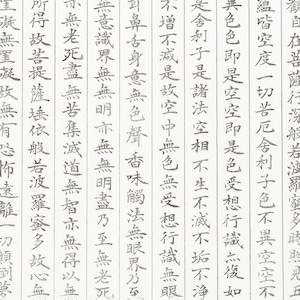 觀自在菩薩行深般若波羅蜜多時照見五
蘊皆空度一切苦厄舍利子色不異空空不
異色色即是空空即是色受想行識亦復如
是舍利子是諸法空相不生不滅不垢不淨
不增不減是故空中無色無受想行識無眼
耳鼻舌身意無色聲香味觸法無眼界乃至
無意識界無無明亦無無明盡乃至無老死
亦無老死盡無苦集滅道無智亦無得以無
所得故菩提薩埵依般若波羅蜜多故心無
罣礙無罣礙故無有恐怖遠離一切顛倒夢